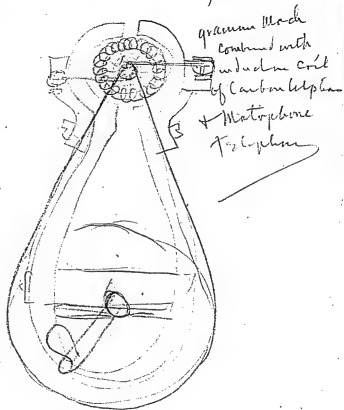 gramme Mach
combined with
induction coil
of Carbon telephone
+ Motophone
telephone